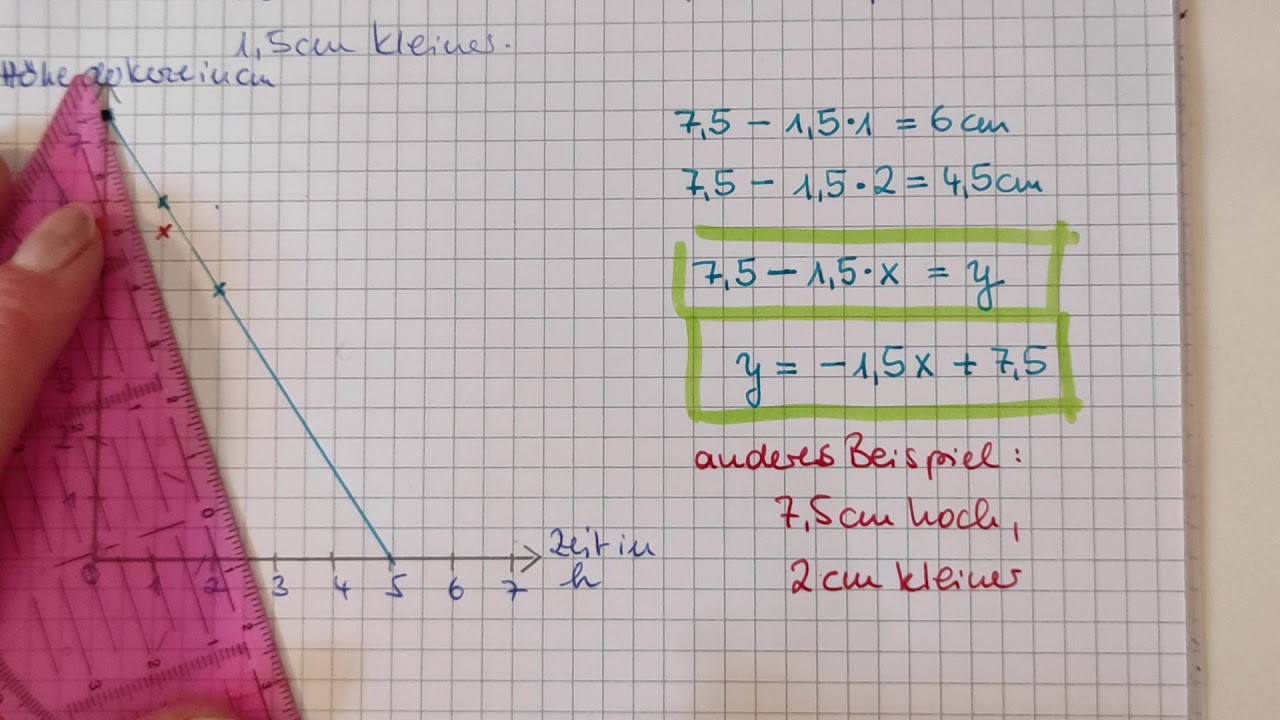 1,5cm kleiner.
Höhe d. Kerze in cm
7,5 – 1,5·1 = 6cm
7,5 – 1,5·2 = 4,5cm
7,5 – 1,5·x = y
y = –1,5x + 7,5
anderes Beispiel:
7,5cm hoch,
2cm kleiner
7
3
2
1
0 1 2 3 4 5 6 7
Zeit in
h